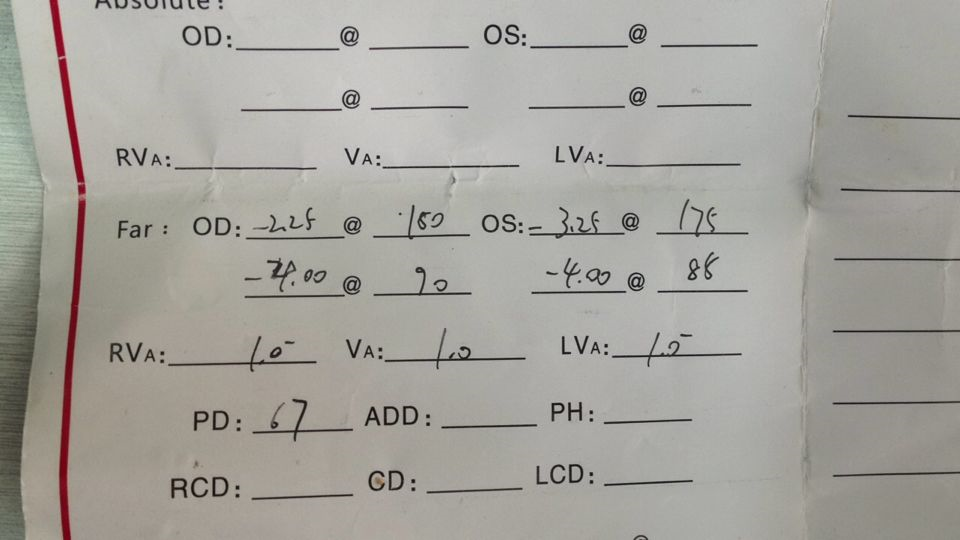 Absolute:
OD: @ OS: @
@ @
RVA: VA: LVA:
Far: OD: -2.25 @ 180 OS: -3.25 @ 175
-4.00 @ 90 -4.00 @ 88
RVA: 1.0⁻ VA: 1.0 LVA: 1.0⁻
PD: 67 ADD: PH:
RCD: CD: LCD: